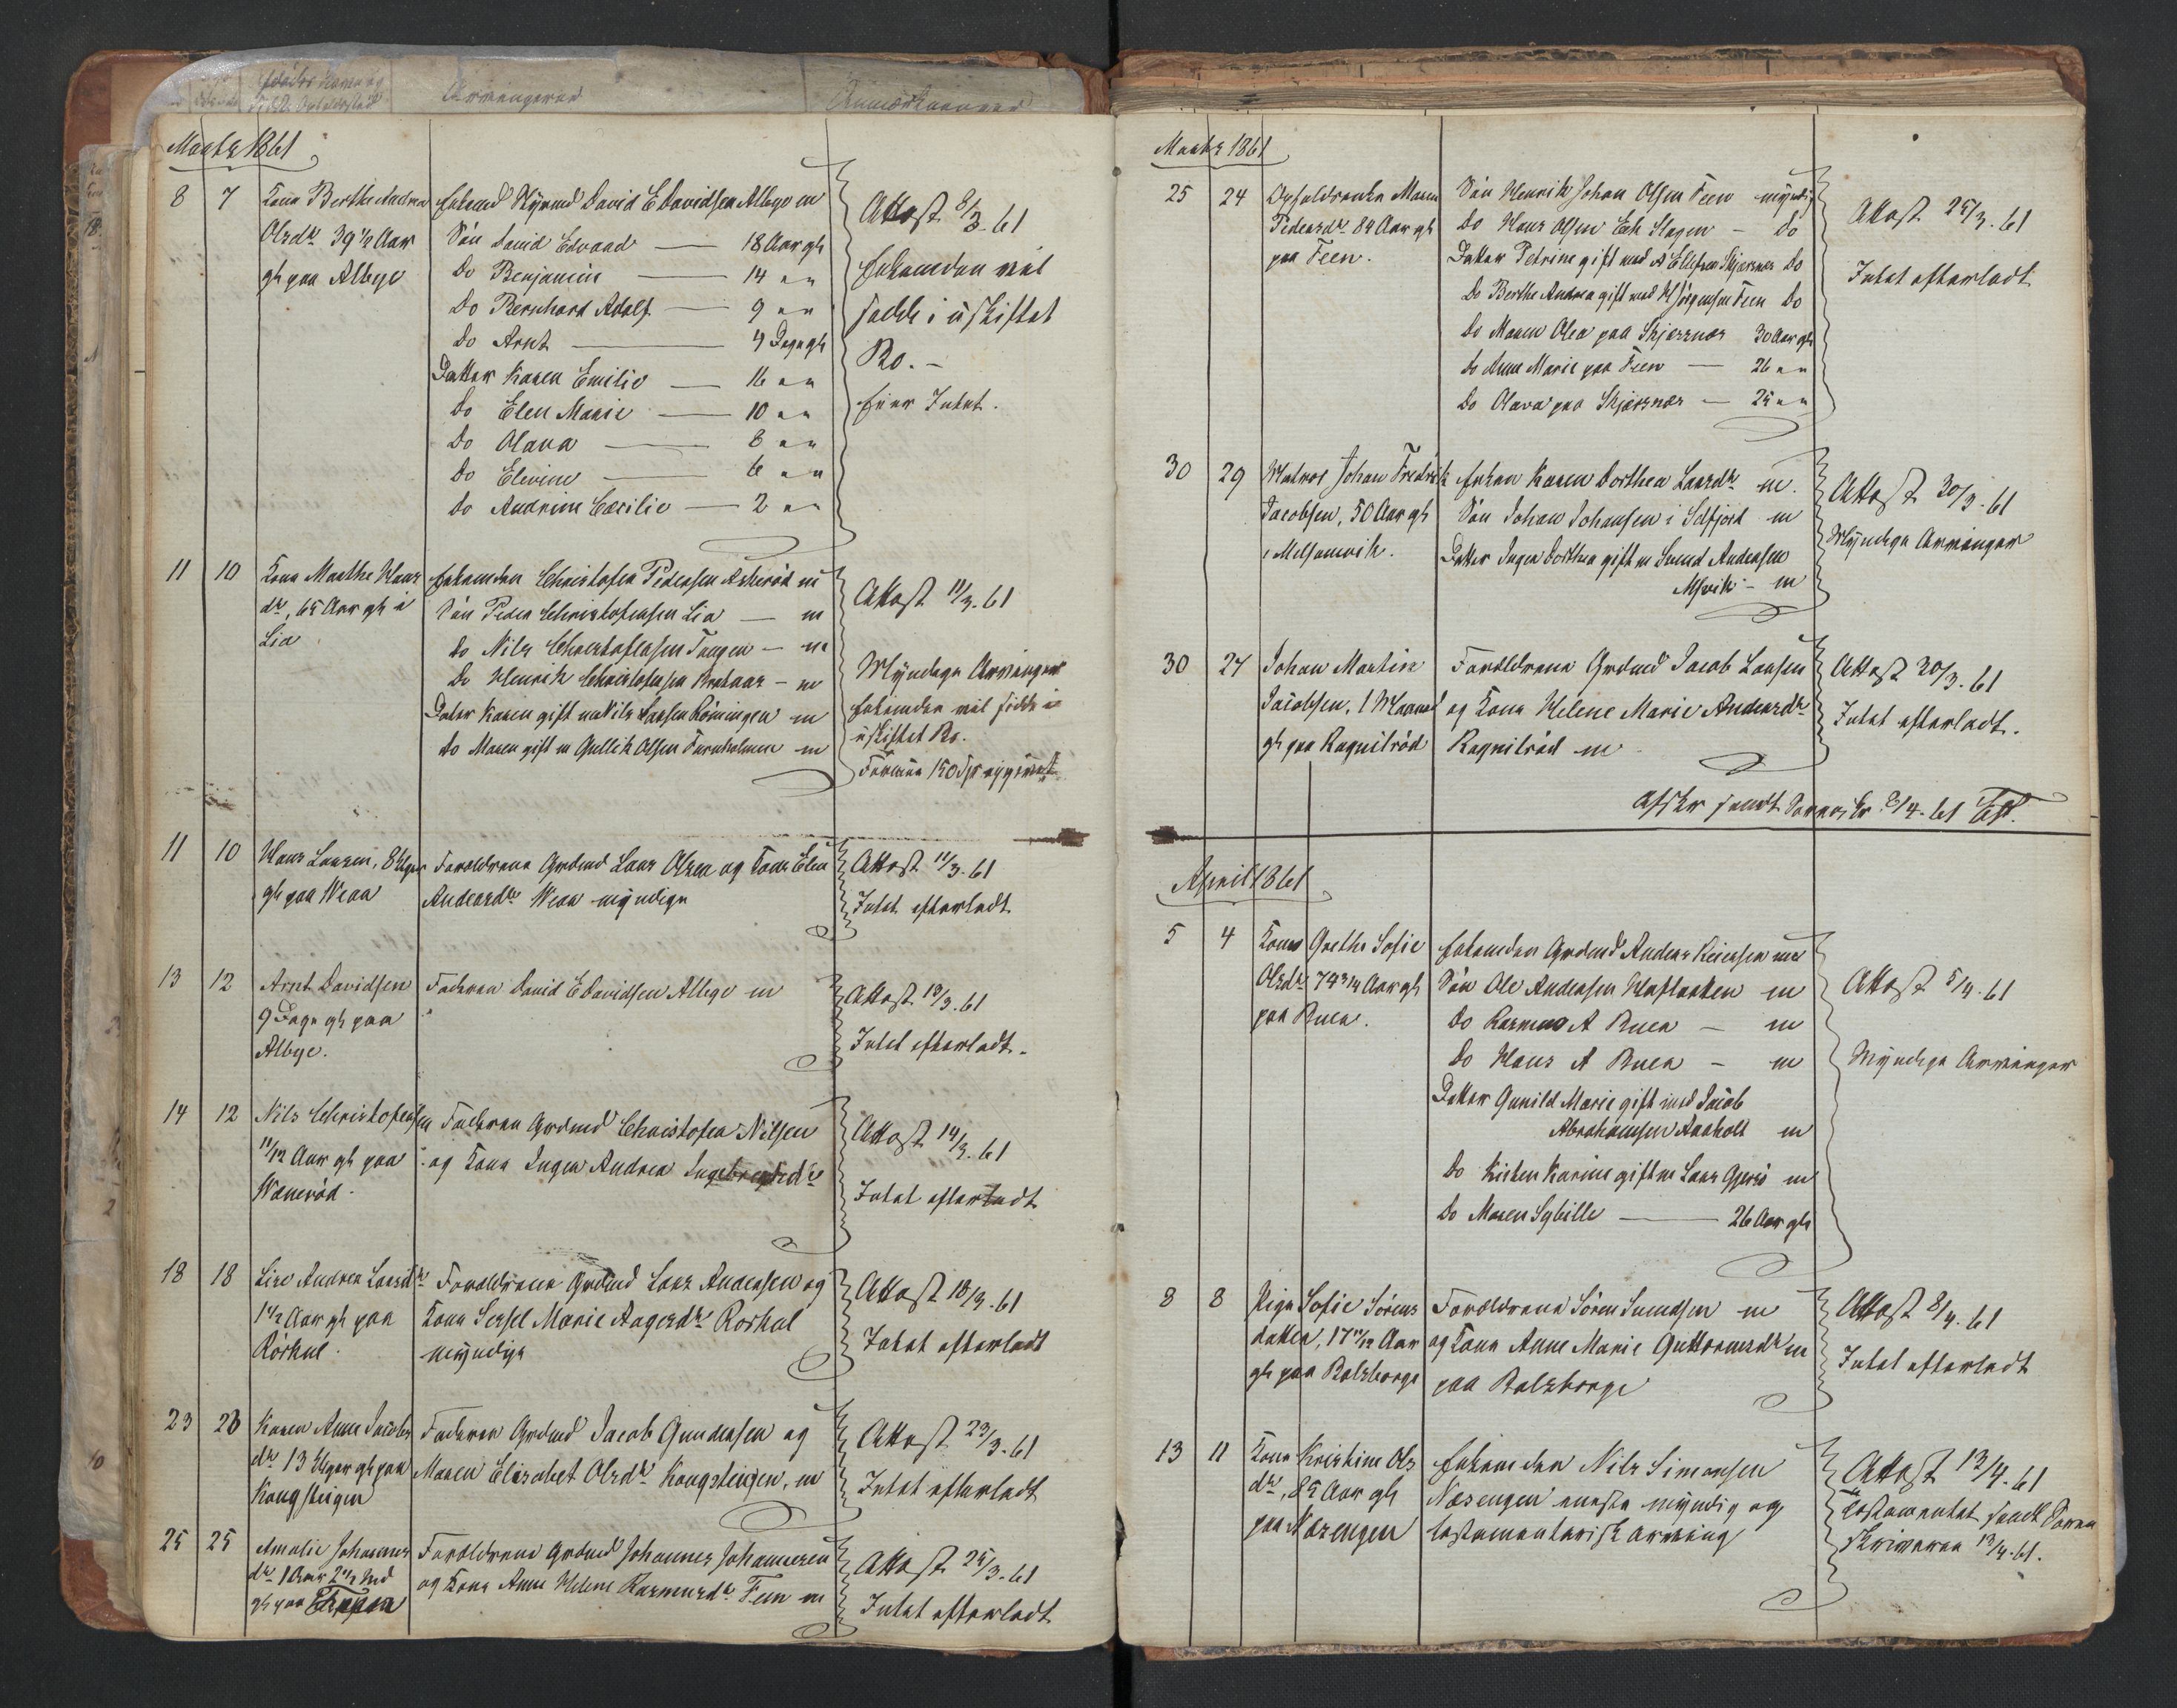 Arvingerne
Anmærkninger
Marts 1861
8 7 Kone Berthe Andrea
Olsdr 39 1/2 Aar
gl paa Albye
Enkemd Styrmd David E Davidsen Albye m
Sön David Edvard — 18 Aar gl
Do Benjamin — 14 " "
Do Bernhard Adolf — 9 " "
Do Arnt — 4 Dage gl
Datter Karen Emilie — 16 " "
Do Elen Marie — 10 " "
Do Olava — 8 " "
Do Elevine — 6 " "
Do Andrine Cecilie — 2 " "
Attest 8/3. 61
Enkemden vil
sidde i uskiftet
Bo. –
Eier Intet.
11 10 Kone Marthe Hans
dr, 65 Aar gl i
Lia
Enkemden Christofer Pedersen Askeröd m
Sön Peder Christofersen Lia — m
Do Nils Christofersen Tangen — m
Do Henrik Christofersen — m
Datter Karen gift m Nils Larsen Röningen m
Do Maren gift m Gullik Olsen Furuholmen m
Attest 11/3. 61
Myndige Arvinger
Enkemden vil sidde i
uskiftet Bo.
Formue 150 Spd opgivet
11 10 Hans Larsen, 8 Uger
gl paa Weaa
Foreldrene Grdmd Lars Olsen og Kone Elen
Andersdr Weaa myndige
Attest 11/3. 61
Intet efterladt
13 12 Arnt Davidsen
9 Dage gl paa
Albye.
Faderen David E Davidsen Albye m
Attest 13/3. 61
Intet efterladt.
14 12 Nils Christofersen
11/12 Aar gl paa
Wæneröd.
Faderen Grdmd Christofer Nilsen
og Kone Inger Andrea Ingebregtsdr
Attest 14/3. 61
Intet efterladt
18 18 Lise Andrea Larsdr
1 1/2 Aar gl paa
Rörkul.
Foreldrene Grdmd Lars Andersen og
Kone Sersel Marie Aagesdr Rorkul
myndige
Attest 18/3. 61
Intet efterladt
23 23 Karen Anne Jacobs
dr 13 Uger gl paa
Kongsteigen
Faderen Grdmd Jacob Gundersen og
Maren Elisabet Olsdr Kongsteigen, m
Attest 23/3. 61
Intet efterladt
25 25 Amalie Johannes
dr 1 Aar 2 1/2 Md
gl paa
Foreldrene Grdmd Johannes Johannesen
og Kone Anne Helene Rasmusdr Feen m
Attest 25/3. 61
Intet efterladt
Marts 1861
25 24 Opholdsenke Maren
Pedersdr 84 Aar gl
paa Feen.
Sön Henrik Johan Olsen Feen myndig
Do Hans Olsen Eek Slagen – Do
Datter Petrine gift med A Ellefsen Skjersnes Do
Do Berthe Andrea gift med H Jörgensen Feen Do
Do Maren Olea paa Skjersnes 30 Aar gl
Do Anne Marie paa Feen — 26 " "
Do Olava paa Skjersnes — 25 " "
Attest 25/3. 61
Intet efterladt
30 29 Matros Johan Fredrik
Jacobsen, 50 Aar gl
i Melsomvik.
Enken Karen Dorthea Larsdr m.
Sön Johan Johansen i Selfjord m
Datter Inger Dorthea gift m Svend Andersen
Melsvik – m
Attest 30/3. 61
Myndige Arvinger
30 24 Johan Martin
Jacobsen, 1 Maaned
gl paa Ragnilröd
Foreldrene Grdmd Jacob Larsen
og Kone Helene Marie Andersdr
Ragnilröd m
Attest 30/3. 61
Intet efterladt.
Afskr sendt Sorenskr 2/4. 61
April 1861
5 4 Kone Grethe Sofie
Olsdr 74 3/4 Aar gl
paa Ruea.
Enkemden Grdmd Anders Reiersen m
Sön Ole Andersen m
Do Rasmus A Ruea – m
Do Hans A Ruea – m
Datter Gunild Marie gift med Jacob
Abrahamsen Aaaholt m
Do Kirsten Karine gift m Lars Gjersö m
Do Maren Sybille — 26 Aar gl
Attest 5/4. 61
Myndige Arvinger
8 8 Pige Sofie Sörens
datter, 17 11/12 Aar
gl paa Rolsborge
Foreldrene Sören Svendsen m
og Kone Anne Marie Guttormsdr m
paa Rolsborge
Attest 8/4. 61
Intet efterladt
13 11 Kone Kristine Ols
dr, 85 Aar gl
paa Næsengen
Enkemden Nils Simonsen
Næsengen eneste myndig og
testamentarisk arving
Attest 13/4. 61
Testamentet sendt Soren
skriveren 13/4. 61.